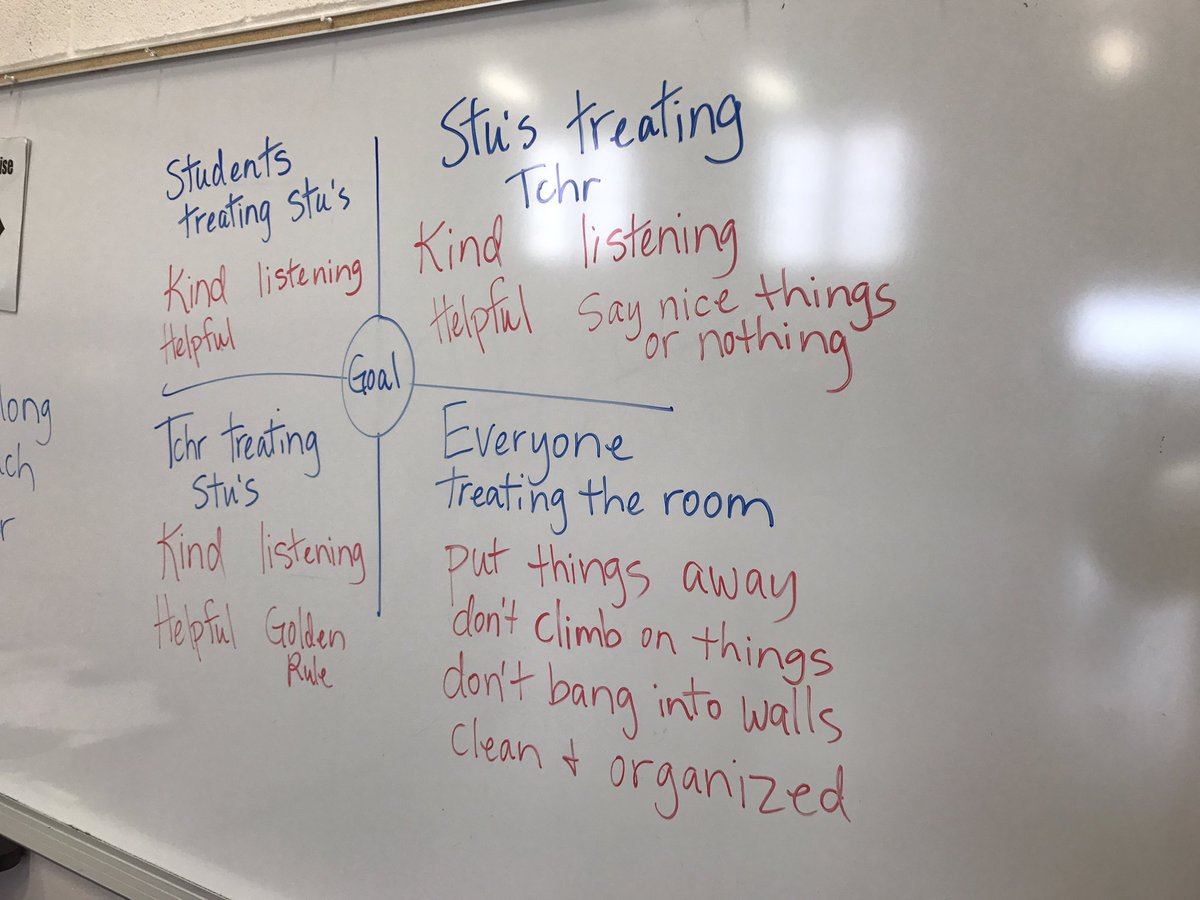 ise
long
ach
r
Students
treating Stu's
Kind listening
Helpful
Stu's treating
Tchr
Kind listening
Helpful Say nice things
or nothing
Goal
Tchr treating
Stu's
Kind listening
Helpful Golden
Rule
Everyone
treating the room
put things away
don't climb on things
don't bang into walls
Clean + organized